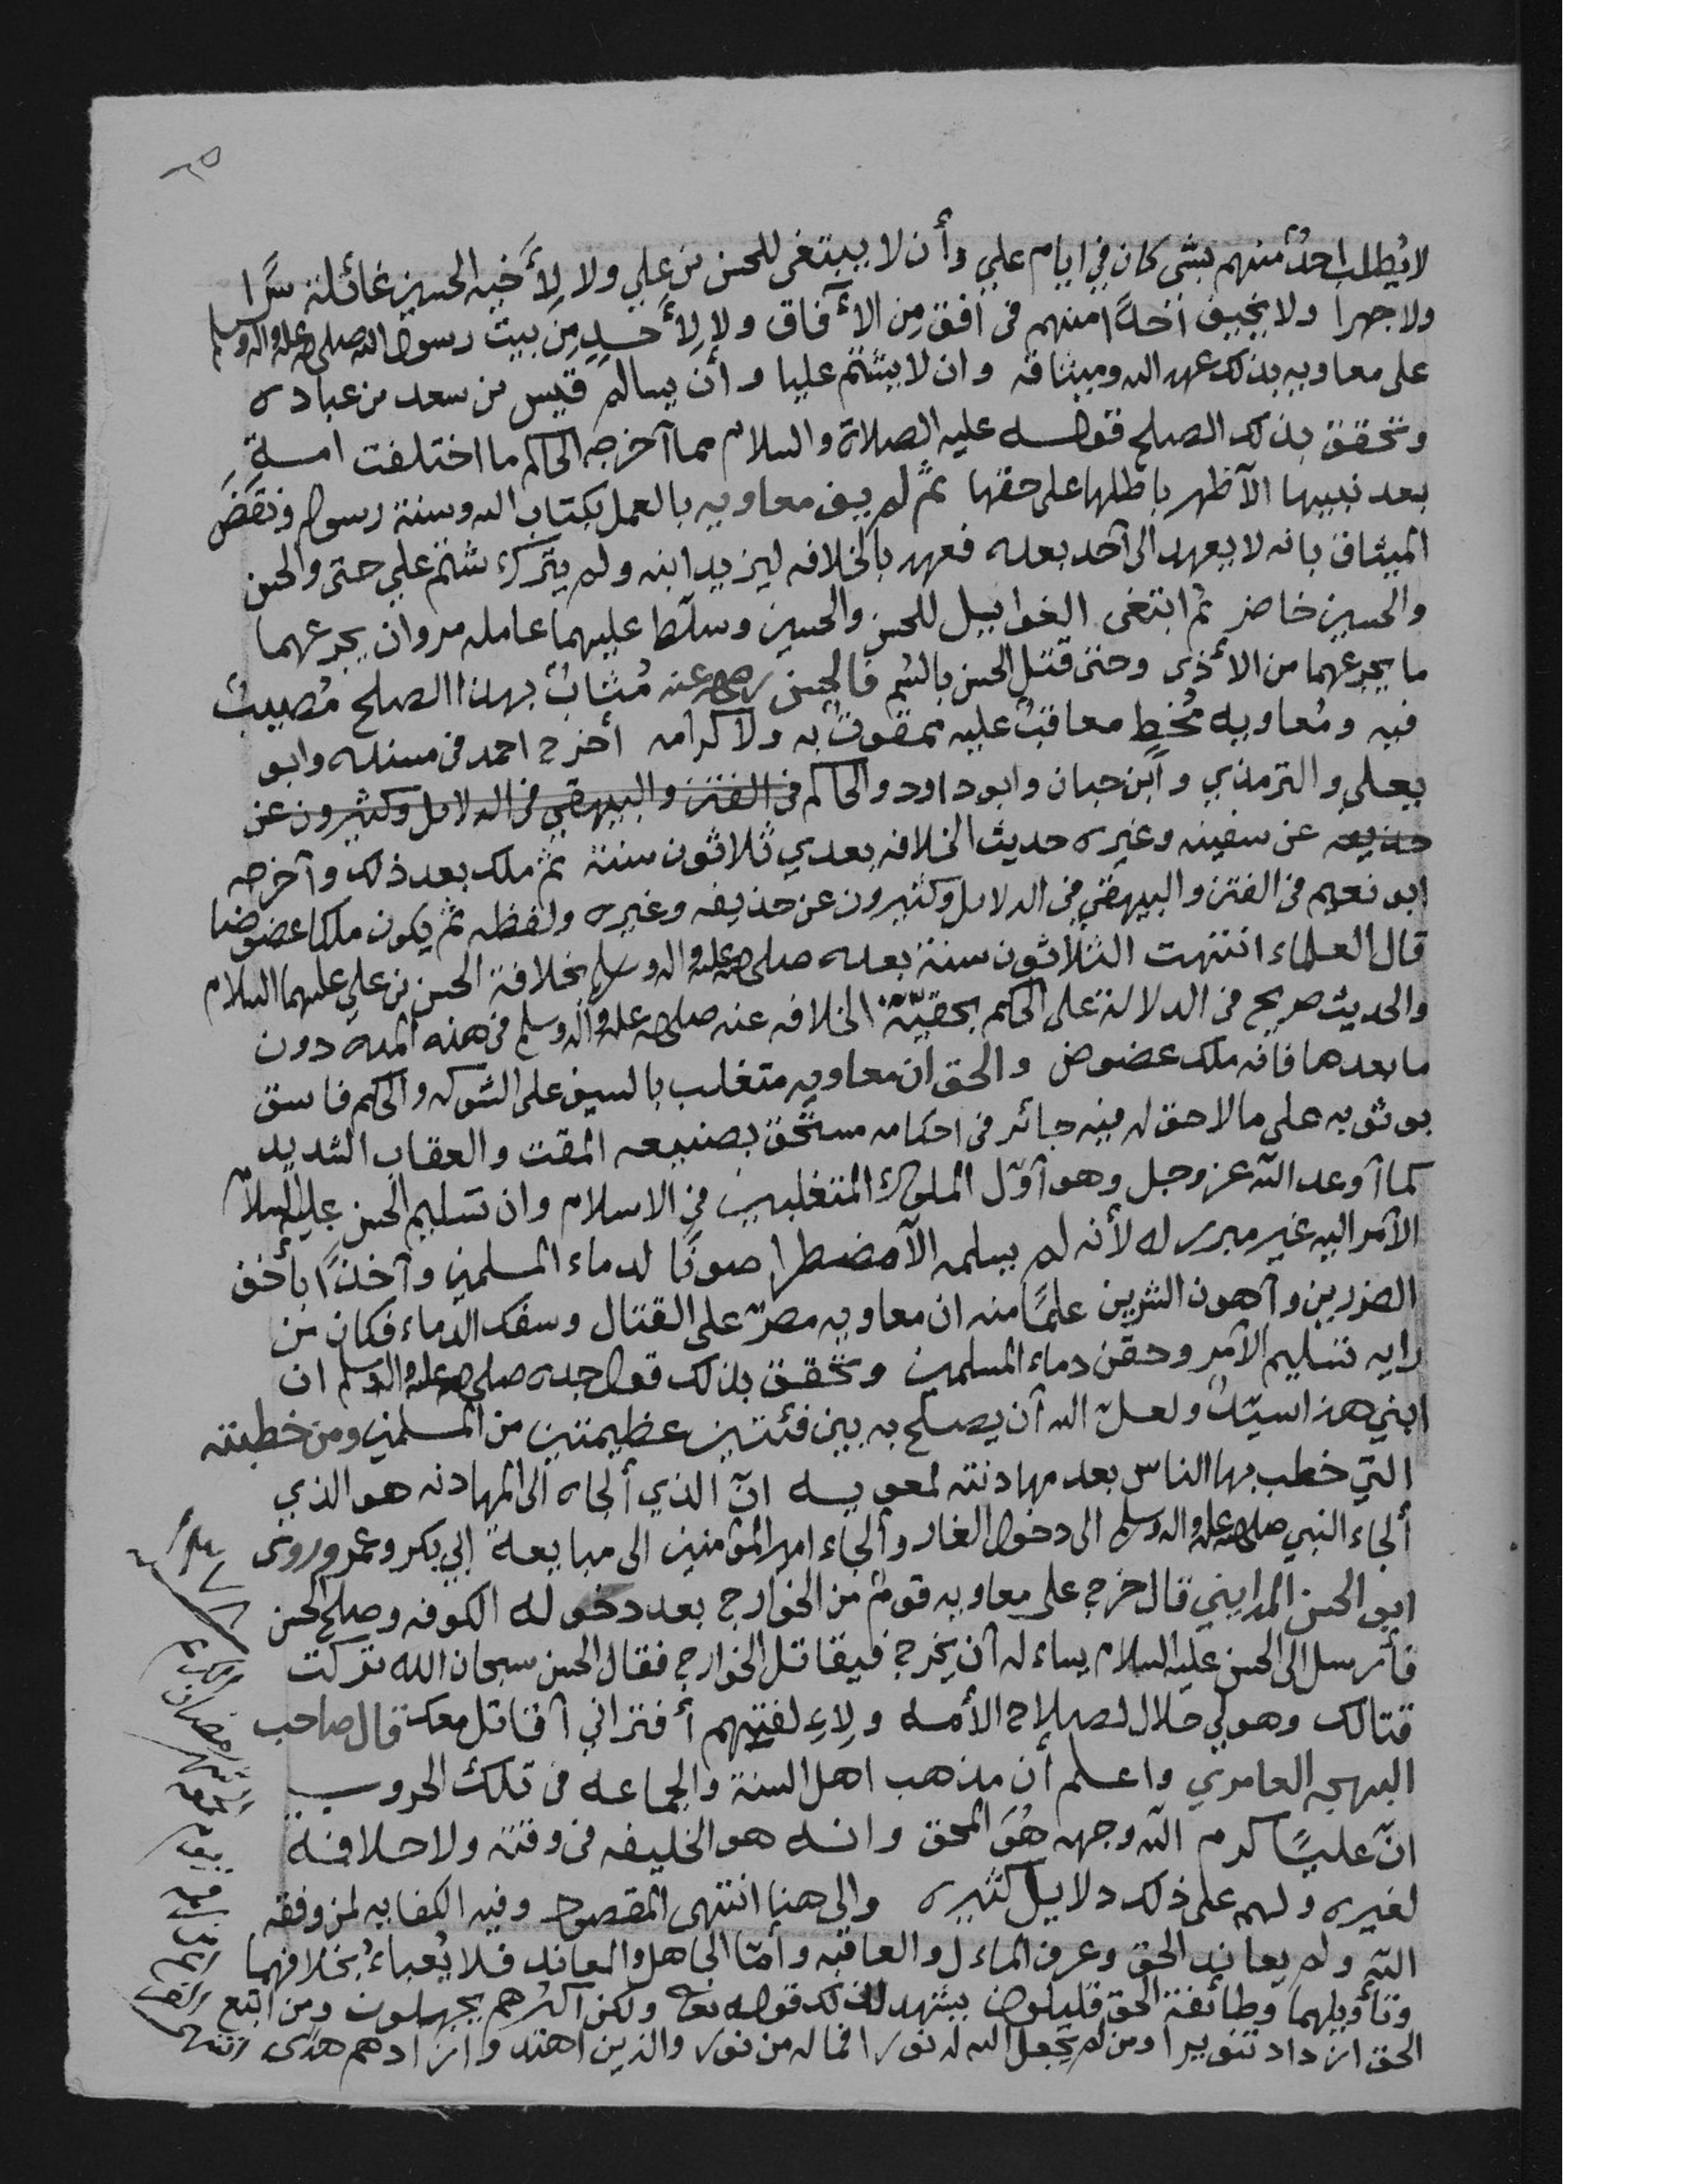 ٢٥
لا يُطلب احدٌ منهم بشى كان في ايام علي وأن لا يبتغى للحسن بن علي ولا لِأَخيه الحسين غائلة سَّرا
ولا جهرا ولا يخيف احدًا منهم فى افق من الأفاق ولا لِأَحدٍ مِن بيت رسول الله صلى الله عليه واله وسلم
على معاويه بذلك عهد الله وميثاقه وان لا يشتم عليا وأن يسالمَ قيس بن سعد بن عباده
وتحقق بذلك الصلح قوله عليه الصلاة والسلام مما آخرجه الحاكم ما اختلفت امة
بعد نبيها الآظهر باطلها على حقها ثمّ لم يف معاويه بالعمل بكتاب الله وسنة رسوله ونقضَ
الميثاق بانه لا يعهد الى آحد بعده فعهد بالخلافه ليزيد ابنه ولم يترك شتم علي حتى والحسن
والحسين حاضر ثم ابتغى الغوابيل للحسن والحسين وسلّط عليهما عامله مروان يجرعهما
ما يجرعهما من الأذى وحتى قتل الحسن بالسُم فالحسن رضي الله عنه مُثابٌ بهذا الصلح مُصيبٌ
فيه ومُعاويه مُخطٍ معاقبٌ عليه ممقوتٌ به ولا كرامه أخرج احمد فى مسنده وابو
يعلى والترمذي وآبن حبان وابو داود والحاكم فى الفتن والبيهقي فى الدلايل وكثيرون عن
حذيفه عن سفينه وغيره حديث الخلافه بعدي ثلاثون سنة ثمّ ملك بعد ذلك وآخرجه
ابو نعيم فى الفتن والبيهقي فى الدلايل وكثيرون عن حذيفه وغيره ولفظه ثم يكون ملكا عضوضا
قال العلماء انتهت الثلاثون سنة بعده صلى الله عليه واله وسلم بخلافة الحسن بن علي عليهما السلام
والحديث صريح فى الدلالة على الحكم بحقيّة الخلافه عنه صلى الله عليه وآله وسلم فى هذه المده دون
ما بعدها فانه ملك عضوض والحق ان معاويه متغلب بالسيف على الشوكه والحكم فاسق
بوثوبه على مالا حق له فيه جائر فى احكامه مستحق بصنيعه المقت والعقاب الشديد
كما آوعد الله عز وجل وهو آوّل الملوك المتغلبين فى الاسلام وان تسليم الحسن عليه السلام
الآمر اليه غير مبرر له لأنه لم يسلمه الآ مضطرا صونًا لدماء المسلمين وآخذًا بأخف
الضررين وآهون الشرين علمًا منه ان معاويه مصرّ على القتال وسفك الدماء فكان من
رايه تسليم الآمر وحقن دماء المسلمين وتحقق بذلك قول جده صلى الله عليه واله وسلم ان
ابني هذا سيّدٌ ولعلّ الله آن يصلح به بين فئتين عظيمتين من المسلمين ومن خطبته
التي خطب بها الناس بعد مهادنته لمعويه انّ الذي ألجاه الى المهادنه هو الذي
ألجاء النبي صلى الله عليه واله وسلم الى دخول الغار وألجاء امير المؤمنين الى مبايعة ابي بكر وعمر وروى
ابو الحسن المدايني قال خرج على معاويه قومٌ من الخوارج بعد دخوله الكوفه وصلح الحسن
فأرسل الى الحسن عليه السلام يساءله آن يخرج فيقاتل الخوارج فقال الحسن سبحان الله تركت
قتالك وهو لي حلال لصلاح الأمه ولاءِ لفتهم أفتراني آقاتل معك قال صاحب
البهجه العامري واعلم أن مذهب اهل السنة والجماعه فى تلك الحروب
انّ عليًا كرم الله وجهه هُوَ المحق وانه هو الخليفه فى وقته ولا خلافة
لغيره ولهم على ذلك دلايل كثيره والى هنا انتهى المقصود وفيه الكفايه لمن وفقه
الله ولم يعاند الحق وعرف الماءل والعاقبه وأمّا الجاهل والمعاند فلا يُعباءُ بخلافهما
وتأويلهما وطائفة الحق قليلون يشهد لذلك قوله تعالى ولكن اكثرهم يجهلون ومن اتبع
الحق ازداد تنويرا ومن لم يجعل الله له نورا فماله من نور والذين اهتدوا زادهم هدى انتهى